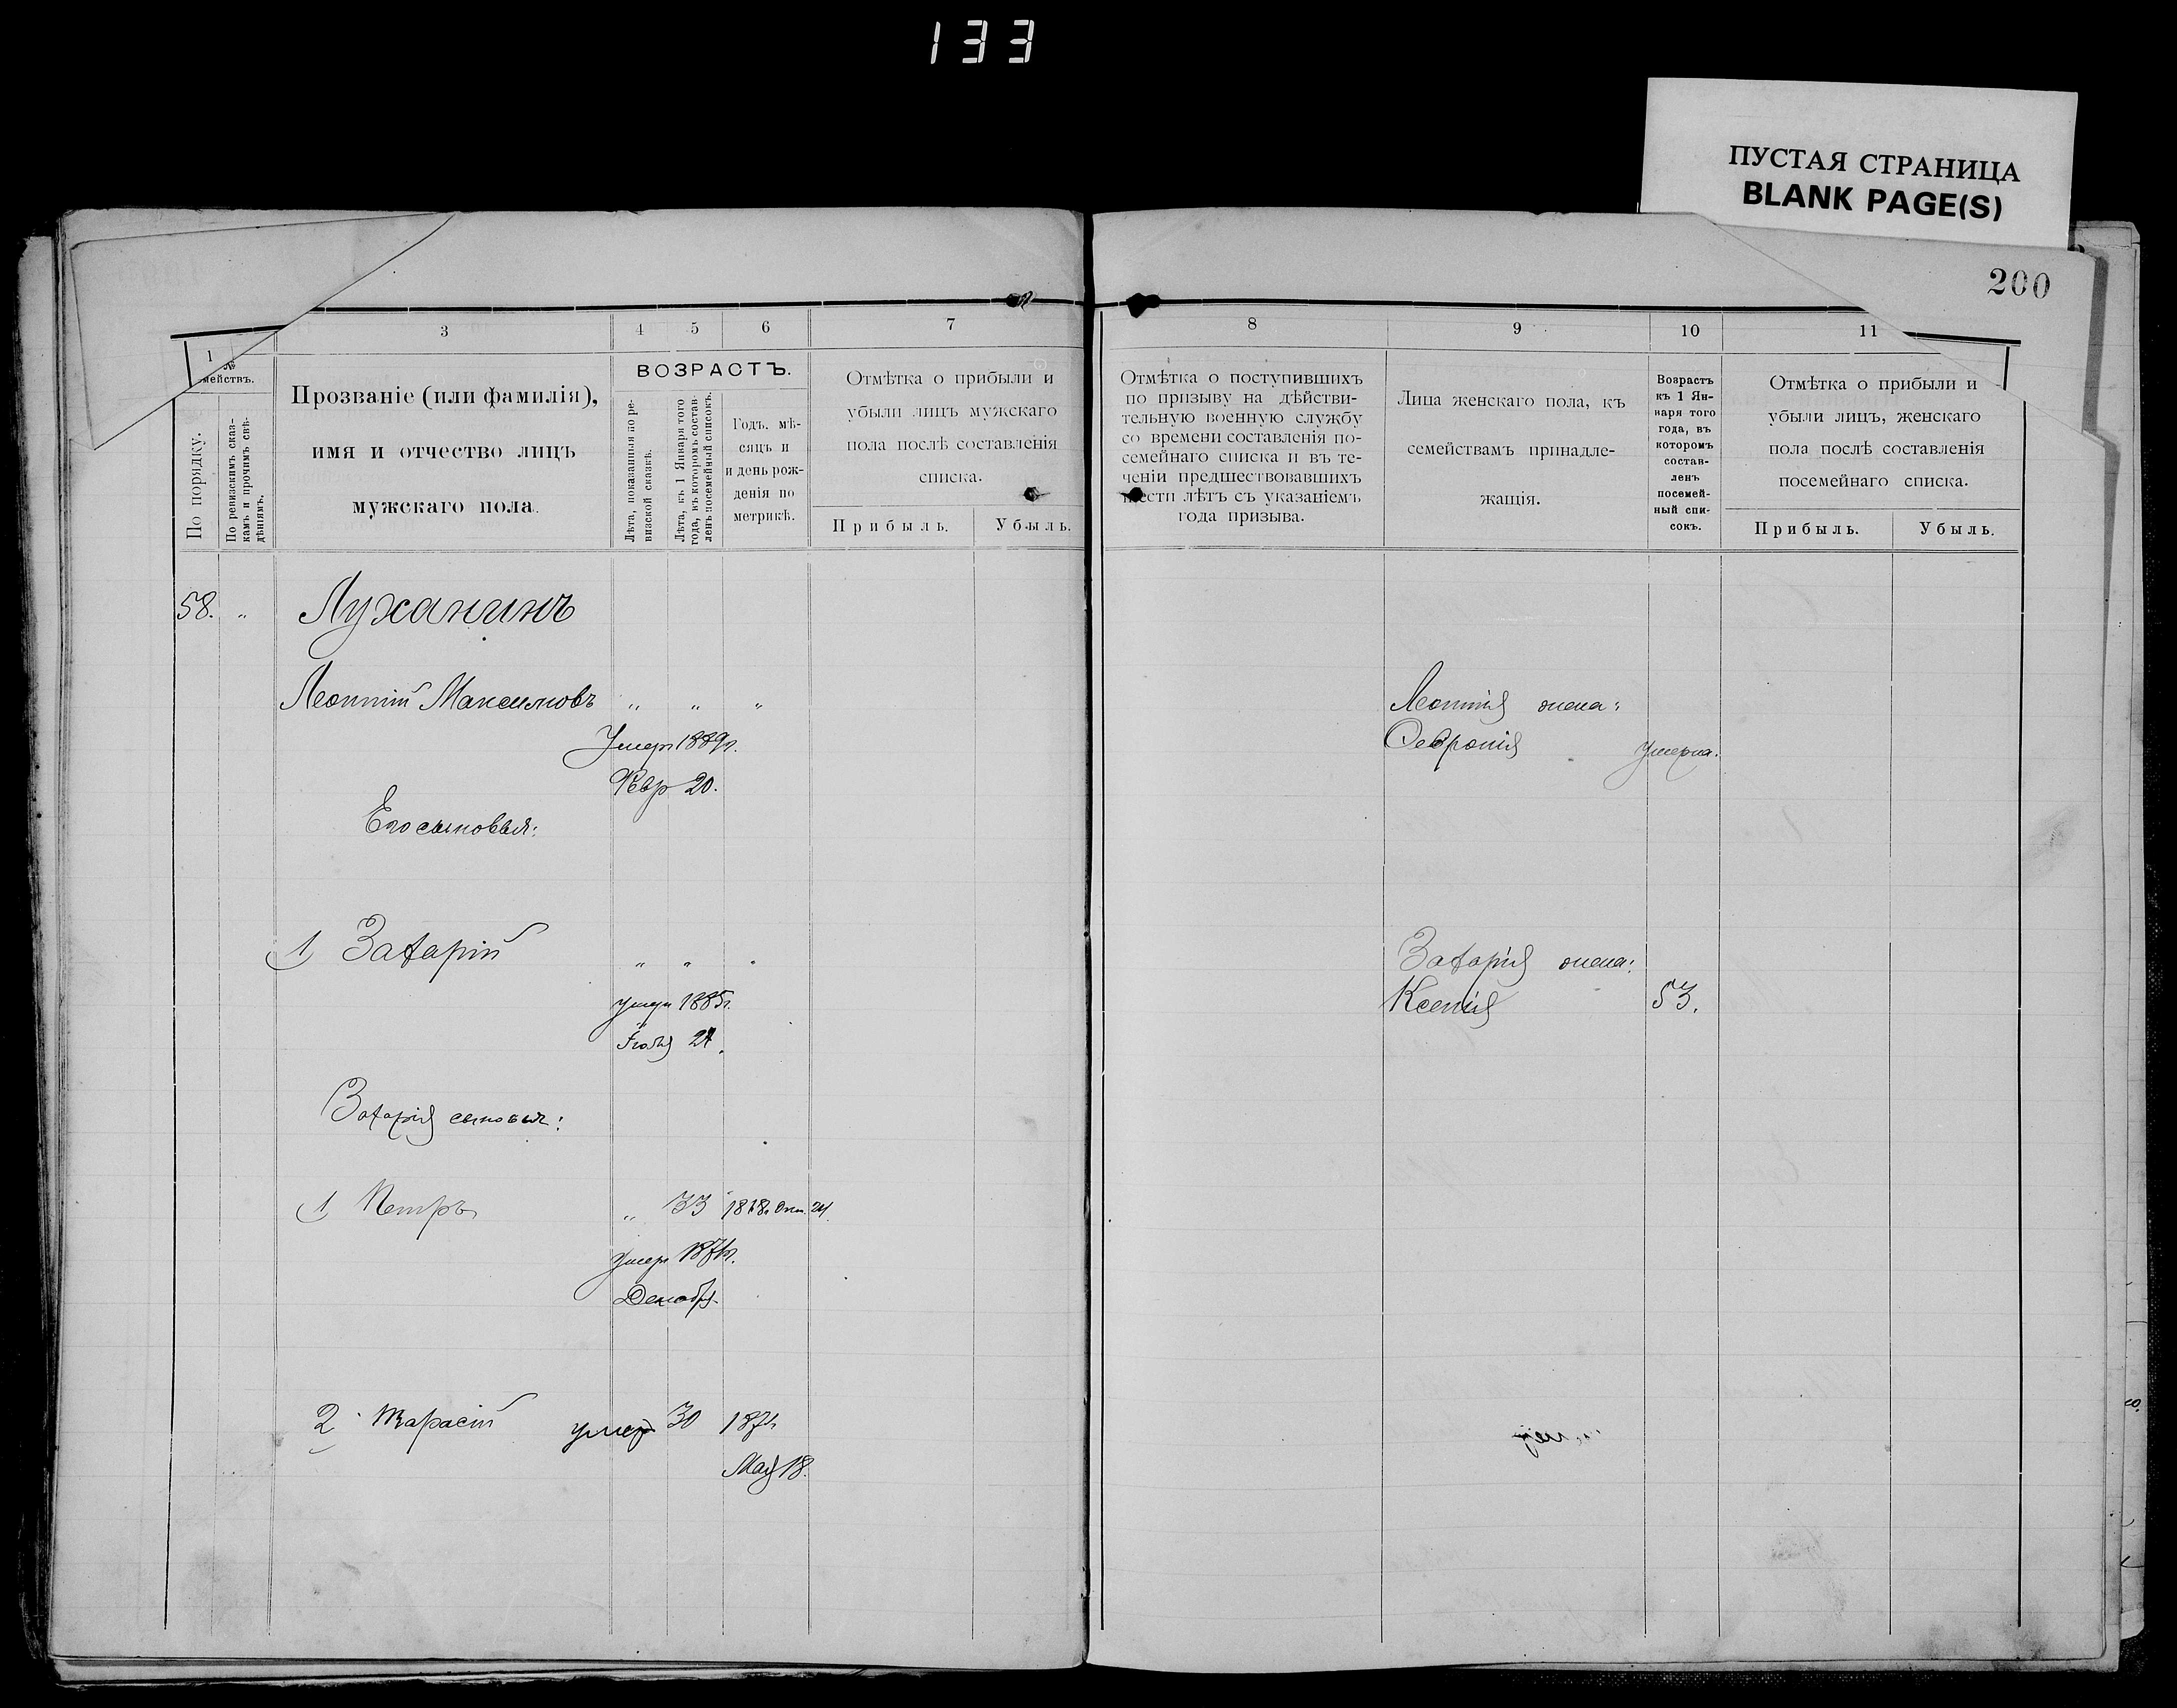 133
ПУСТАЯ СТРАНИЦА
BLANK PAGE(S)
200
1
3
4
5
6
7
8
9
10
11
№
мействъ.
По порядку.
По ревизскимъ сказ-
камъ и прочимъ свѣ-
дѣніямъ.
Прозваніе (или фамилія),
имя и отчество лицъ
мужскаго пола.
ВОЗРАСТЪ.
Лѣта, показанныя по ре-
визской сказкѣ.
Лѣта, къ 1 Января того
года, въ которомъ состав-
ленъ посемейный списокъ.
Годъ, мѣ-
сяцъ и
и день рож-
денія по
метрикѣ.
Отмѣтка о прибыли и
убыли лицъ мужскаго
пола послѣ составленія
списка.
Прибыль.
Убыль.
Отмѣтка о поступившихъ
по призыву на дѣйстви-
тельную военную службу
со времени составленія по-
семейнаго списка и въ те-
ченіи предшествовавшихъ
шести лѣтъ съ указаніемъ
года призыва.
Лица женскаго пола, къ
семействамъ принадле-
жащія.
Возрастъ
къ 1 Ян-
варя того
года, въ
которомъ
состав-
ленъ
посемей-
ный спи-
сокъ.
Отмѣтка о прибыли и
убыли лицъ, женскаго
пола послѣ составленія
посемейнаго списка.
Прибыль.
Убыль.
58. " Луханинъ
Леонтій Максимовъ " " "
Леонтія жена:
Умеръ 1889г.
Февронія Умерла.
Февр 20.
Его сыновья:
1) Захарій " " "
Захарія жена:
умеръ 1885г.
Ксенія 53.
Іюля
Захарія сыновья:
1) Петръ " 33 Окт. 24.
умеръ
Декабря
2 Тарасій умеръ 30
Мая 18.